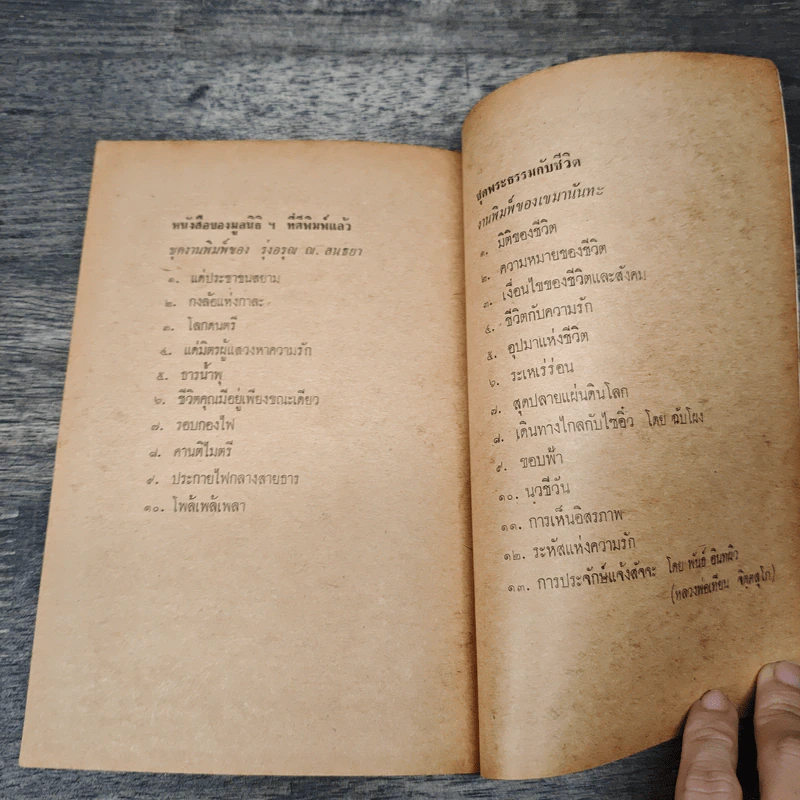 หนังสือของมูลนิธิ ฯ ที่ตีพิมพ์แล้ว
ชุดงานพิมพ์ของ รุ่งอรุณ ณ. สนธยา
๑. แด่ประชาชนสยาม
๒. กงล้อแห่งกาละ
๓. โลกดนตรี
๔. แด่มิตรผู้แสวงหาความรัก
๕. ธารน้ำพุ
๖. ชีวิตคุณมีอยู่เพียงขณะเดียว
๗. รอบกองไฟ
๘. คานติไมตรี
๙. ประกายไฟกลางสายธาร
๑๐. โพล้เพล้เพลา
ชุดพระธรรมกับชีวิต
งานพิมพ์ของเขมานันทะ
๑. มิติของชีวิต
๒. ความหมายของชีวิต
๓. เงื่อนไขของชีวิตและสังคม
๔. ชีวิตกับความรัก
๕. อุปมาแห่งชีวิต
๖. ระเหเร่ร่อน
๗. สุดปลายแผ่นดินโลก
๘. เดินทางไกลกับไซอิ๋ว โดย ฉับโผง
๙. ขอบฟ้า
๑๐. นวชีวัน
๑๑. การเห็นอิสรภาพ
๑๒. ระหัสแห่งความรัก
๑๓. การประจักษ์แจ้งสัจจะ โดย พันธ์ อินทผิว
(หลวงพ่อเทียน จิตฺตสุโภ)